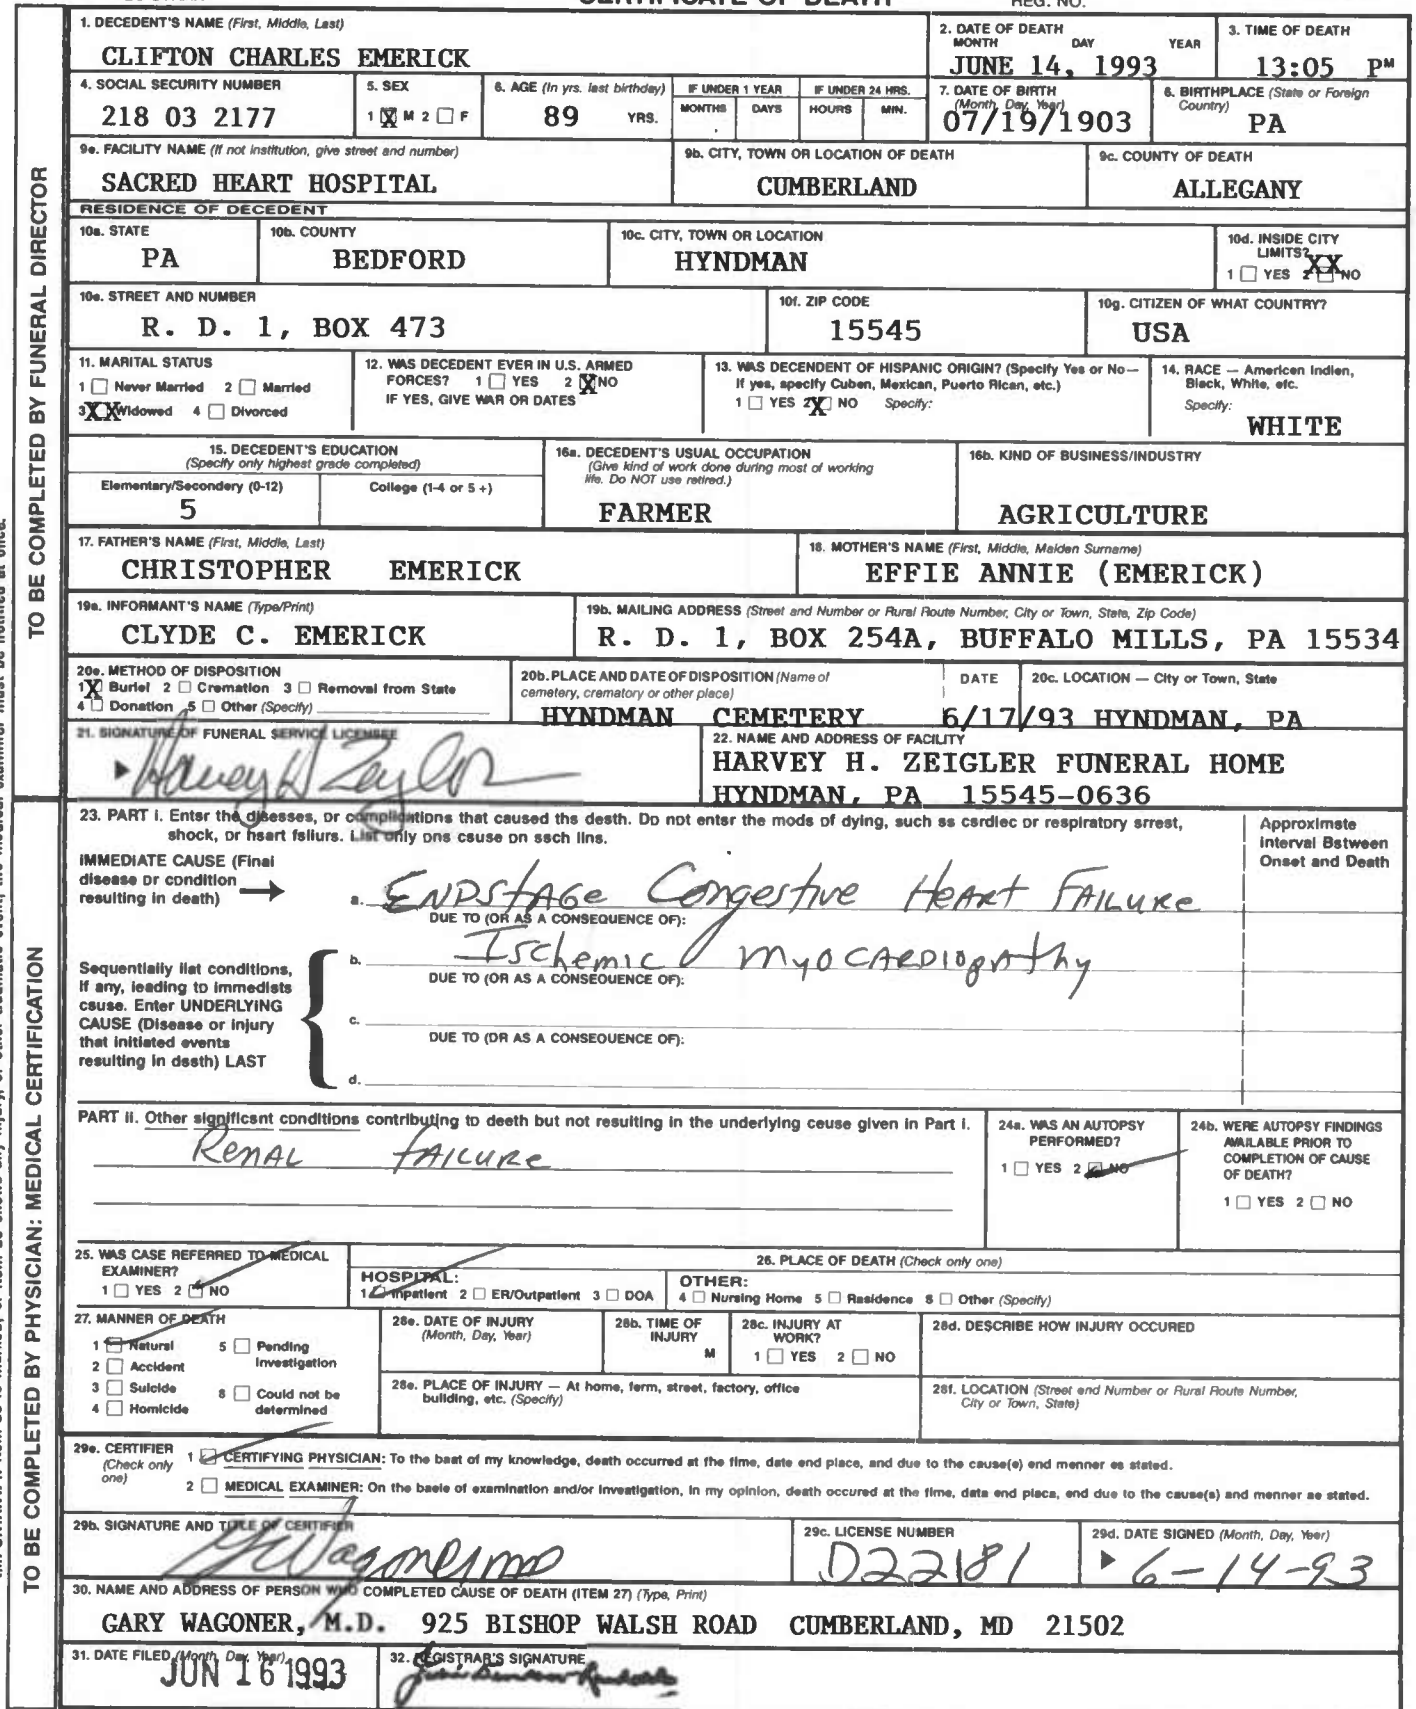 CERTIFICATE OF DEATH REG. NO.
1. DECEDENT'S NAME (First, Middle, Last)
CLIFTON CHARLES EMERICK
2. DATE OF DEATH
MONTH DAY YEAR
JUNE 14, 1993
3. TIME OF DEATH
13:05 PM
4. SOCIAL SECURITY NUMBER
218 03 2177
5. SEX
1 X M 2 F
6. AGE (In yrs. last birthday)
89 YRS.
IF UNDER 1 YEAR
MONTHS DAYS
IF UNDER 24 HRS.
HOURS MIN.
7. DATE OF BIRTH
(Month, Day, Year)
07/19/1903
8. BIRTHPLACE (State or Foreign
Country)
PA
9a. FACILITY NAME (If not institution, give street and number)
SACRED HEART HOSPITAL
9b. CITY, TOWN OR LOCATION OF DEATH
CUMBERLAND
9c. COUNTY OF DEATH
ALLEGANY
RESIDENCE OF DECEDENT
10a. STATE
PA
10b. COUNTY
BEDFORD
10c. CITY, TOWN OR LOCATION
HYNDMAN
10d. INSIDE CITY
LIMITS?
1 YES 2 XX NO
10e. STREET AND NUMBER
R. D. 1, BOX 473
10f. ZIP CODE
15545
10g. CITIZEN OF WHAT COUNTRY?
USA
11. MARITAL STATUS
1 Never Married 2 Married
3 XX Widowed 4 Divorced
12. WAS DECEDENT EVER IN U.S. ARMED
FORCES? 1 YES 2 X NO
IF YES, GIVE WAR OR DATES
13. WAS DECENDENT OF HISPANIC ORIGIN? (Specify Yes or No—
If yes, specify Cuban, Mexican, Puerto Rican, etc.)
1 YES 2 X NO Specify:
14. RACE — American Indian,
Black, White, etc.
Specify:
WHITE
15. DECEDENT'S EDUCATION
(Specify only highest grade completed)
Elementary/Secondary (0-12) College (1-4 or 5 +)
5
16a. DECEDENT'S USUAL OCCUPATION
(Give kind of work done during most of working
life. Do NOT use retired.)
FARMER
16b. KIND OF BUSINESS/INDUSTRY
AGRICULTURE
17. FATHER'S NAME (First, Middle, Last)
CHRISTOPHER EMERICK
18. MOTHER'S NAME (First, Middle, Maiden Surname)
EFFIE ANNIE (EMERICK)
19a. INFORMANT'S NAME (Type/Print)
CLYDE C. EMERICK
19b. MAILING ADDRESS (Street and Number or Rural Route Number, City or Town, State, Zip Code)
R. D. 1, BOX 254A, BUFFALO MILLS, PA 15534
20a. METHOD OF DISPOSITION
1 X Burial 2 Cremation 3 Removal from State
4 Donation 5 Other (Specify)
20b. PLACE AND DATE OF DISPOSITION (Name of
cemetery, crematory or other place)
HYNDMAN CEMETERY
DATE
6/17/93
20c. LOCATION — City or Town, State
HYNDMAN, PA
21. SIGNATURE OF FUNERAL SERVICE LICENSEE
Harvey H Zeigler
22. NAME AND ADDRESS OF FACILITY
HARVEY H. ZEIGLER FUNERAL HOME
HYNDMAN, PA 15545-0636
TO BE COMPLETED BY FUNERAL DIRECTOR
23. PART I. Enter the diseases, or complications that caused the death. Do not enter the mode of dying, such as cardiac or respiratory arrest,
shock, or heart failure. List only one cause on each line.
Approximate
Interval Between
Onset and Death
IMMEDIATE CAUSE (Final
disease or condition
resulting in death)
a. ENDSTAGE Congestive HEART FAILURE
DUE TO (OR AS A CONSEQUENCE OF):
b. Ischemic myocardiopathy
DUE TO (OR AS A CONSEQUENCE OF):
c.
DUE TO (OR AS A CONSEQUENCE OF):
d.
Sequentially list conditions,
if any, leading to immediate
cause. Enter UNDERLYING
CAUSE (Disease or injury
that initiated events
resulting in death) LAST
PART II. Other significant conditions contributing to death but not resulting in the underlying cause given in Part I.
Renal FAILURE
24a. WAS AN AUTOPSY
PERFORMED?
1 YES 2 NO
24b. WERE AUTOPSY FINDINGS
AVAILABLE PRIOR TO
COMPLETION OF CAUSE
OF DEATH?
1 YES 2 NO
25. WAS CASE REFERRED TO MEDICAL
EXAMINER?
1 YES 2 NO
26. PLACE OF DEATH (Check only one)
HOSPITAL:
1 Inpatient 2 ER/Outpatient 3 DOA
OTHER:
4 Nursing Home 5 Residence 6 Other (Specify)
27. MANNER OF DEATH
1 Natural 5 Pending
Investigation
2 Accident
3 Suicide 6 Could not be
determined
4 Homicide
28a. DATE OF INJURY
(Month, Day, Year)
28b. TIME OF
INJURY
M
28c. INJURY AT
WORK?
1 YES 2 NO
28d. DESCRIBE HOW INJURY OCCURED
28e. PLACE OF INJURY — At home, farm, street, factory, office
building, etc. (Specify)
28f. LOCATION (Street and Number or Rural Route Number,
City or Town, State)
29a. CERTIFIER
(Check only
one)
1 CERTIFYING PHYSICIAN: To the best of my knowledge, death occurred at the time, date and place, and due to the cause(s) and manner as stated.
2 MEDICAL EXAMINER: On the basis of examination and/or investigation, in my opinion, death occured at the time, date and place, and due to the cause(s) and manner as stated.
29b. SIGNATURE AND TITLE OF CERTIFIER
G Wagoner MD
29c. LICENSE NUMBER
D22181
29d. DATE SIGNED (Month, Day, Year)
6-14-93
30. NAME AND ADDRESS OF PERSON WHO COMPLETED CAUSE OF DEATH (ITEM 27) (Type, Print)
GARY WAGONER, M.D. 925 BISHOP WALSH ROAD CUMBERLAND, MD 21502
31. DATE FILED (Month, Day, Year)
JUN 16 1993
32. REGISTRAR'S SIGNATURE
TO BE COMPLETED BY PHYSICIAN: MEDICAL CERTIFICATION